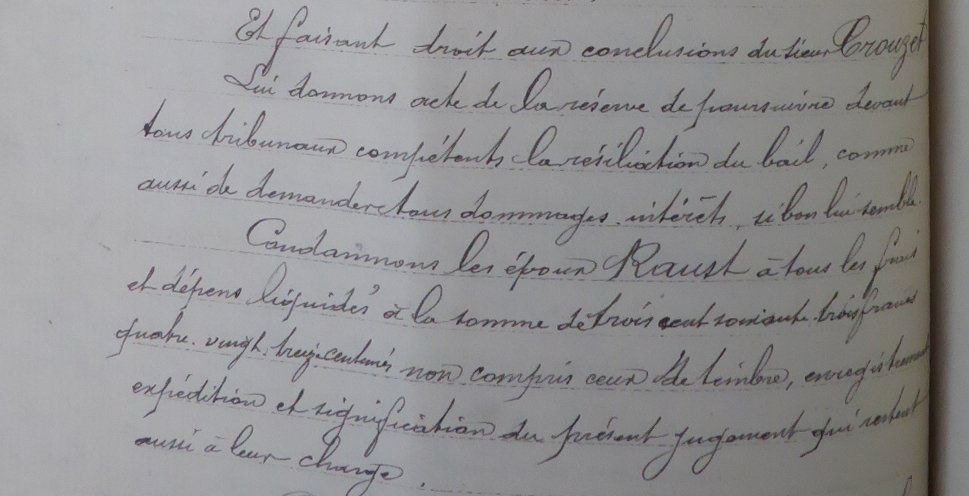 Et faisant droit aux conclusions du sieur Crouzet
Lui donnons acte de la réserve de poursuivre devant
tous tribunaux compétents la résiliation du bail, comme
aussi de demander tous dommages intérêts, si bon lui semble.
Condamnons les époux Raust à tous les frais
et dépens liquidés à la somme de trois cent soixante-trois francs
quatre-vingt-treize centimes non compris ceux de timbre, enregistrement
expédition et signification du présent jugement qui restent
aussi à leur charge.